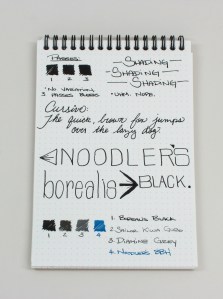 Passes:
SHADING
SHADING
SHADING
1 2 3
• NO VARIATION,
3 PASSES BLEEDS
• UMM. NOPE.
Cursive:
The quick, brown fox jumps
over the lazy dog.
NOODLER'S
borealis BLACK.
1. BOREALIS BLACK
2. SAILOR KIWA GURO
3. DIAMINE GREY
4. NOODLER'S BBH
1 2 3 4